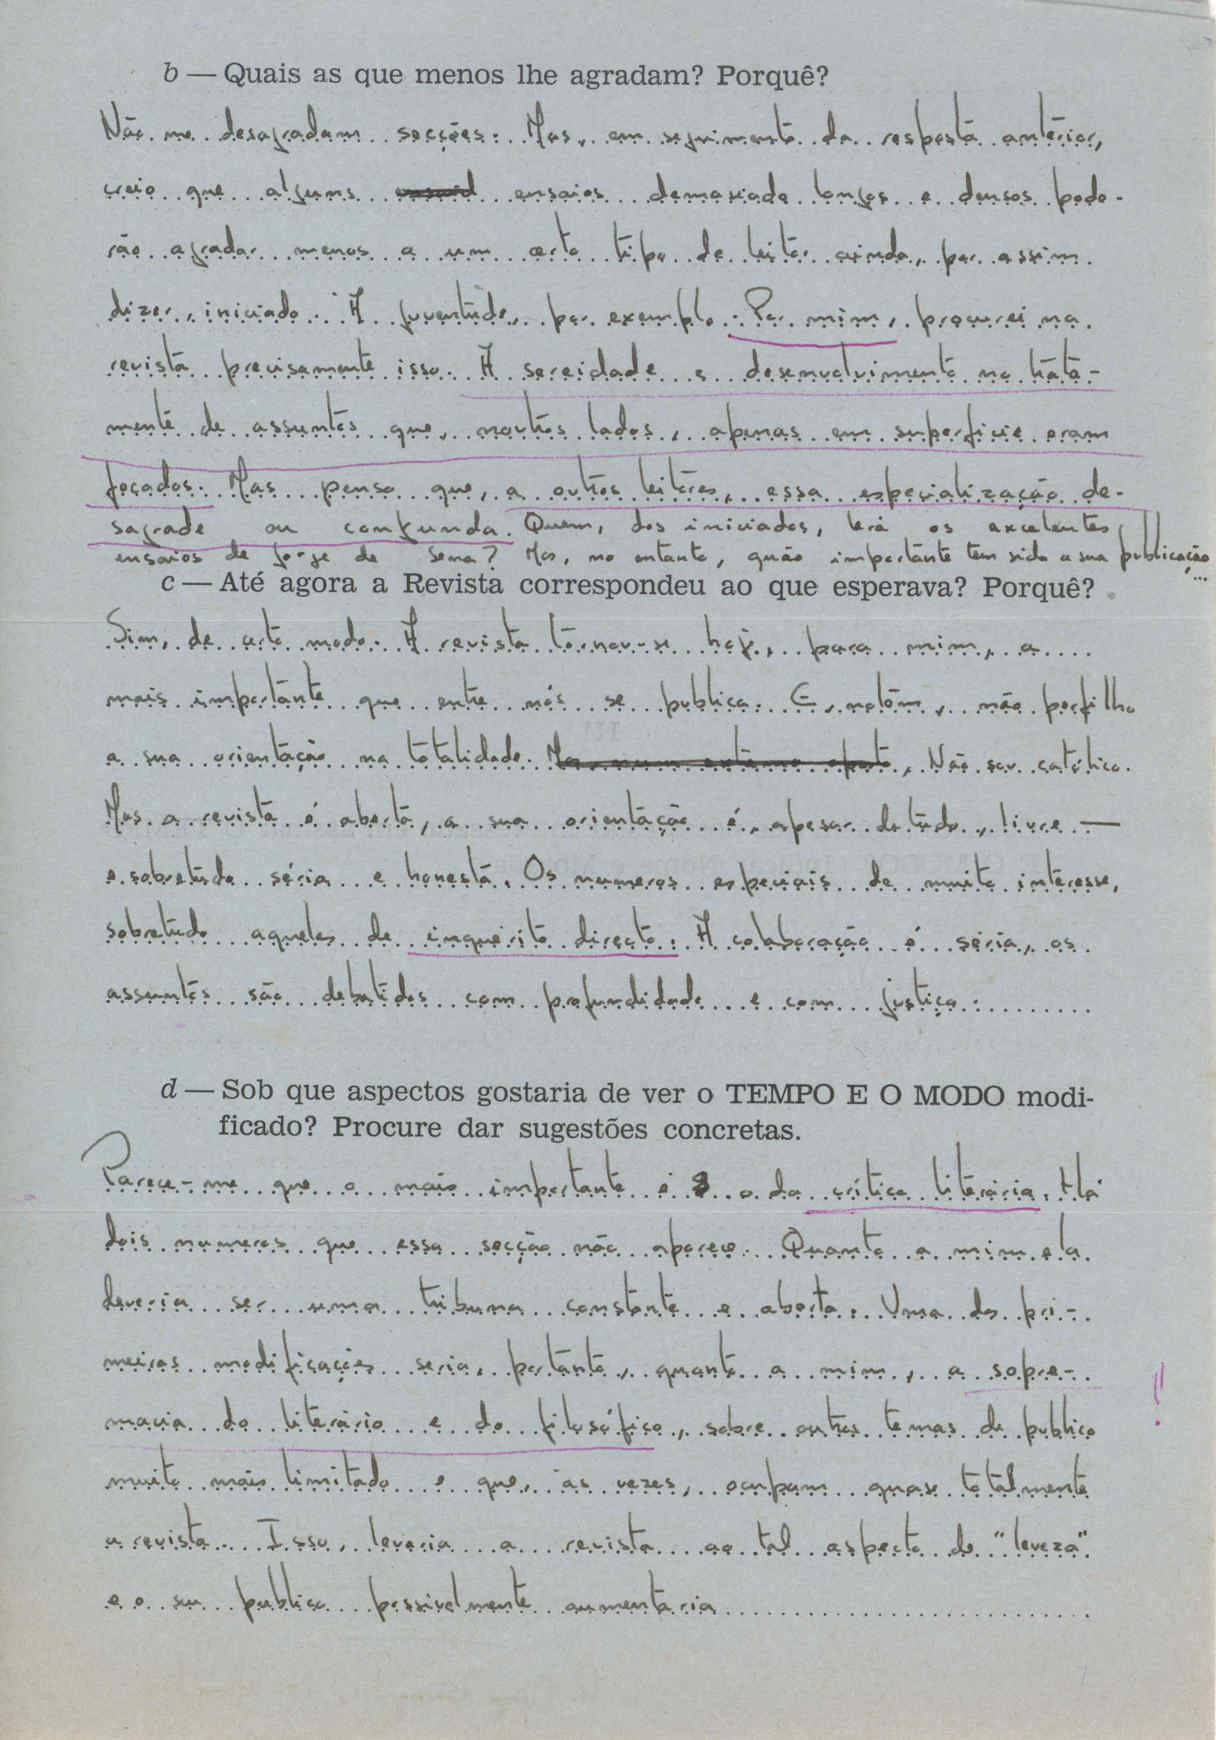 b — Quais as que menos lhe agradam? Porquê?
Não me desagradam secções. Mas, em seguimento da resposta anterior,
creio que alguns ensaios demasiado longos e densos pode-
rão agradar menos a um certo tipo de leitor ainda, por assim
dizer, iniciado. A juventude, por exemplo. Por mim, procurei na
revista precisamente isso. A sereidade e desenvolvimento no trata-
mento de assuntos que, noutros lados, apenas em superficie eram
focados. Mas penso que, a outros leitores, essa especialização de-
sagrade ou confunda. Quem, dos iniciados, lerá os excelentes
ensaios de Jorge de Sena? Mas, no entanto, quão importante tem sido a sua publicação...
c — Até agora a Revista correspondeu ao que esperava? Porquê?
Sim, de certo modo. A revista tornou-se hoje, para mim, a
mais importante que entre nós se publica. E, notem, não perfilho
a sua orientação na totalidade. Não sou católico.
Mas a revista é aberta, a sua orientação é, apesar de tudo, livre —
e sobretudo séria e honesta. Os numeros especiais de muito interesse,
sobretudo aqueles de inquerito directo. A colaboração é séria, os
assuntos são debatidos com profundidade e com justiça.
d — Sob que aspectos gostaria de ver o TEMPO E O MODO modi-
ficado? Procure dar sugestões concretas.
Parece-me que o mais importante é o da crítica literária. Há
dois numeros que essa secção não aparece. Quanto a mim ela
deveria ser uma tribuna constante e aberta. Uma das pri-
meiras modificações seria, portanto, quanto a mim, a sopre-
macia do literário e do filosófico, sobre outros temas de publico
muito mais limitado e que, às vezes, ocupam quase totalmente
a revista. Isso, levaria a revista ao tal aspecto de "leveza"
e o seu publico possivelmente aumentaria
!